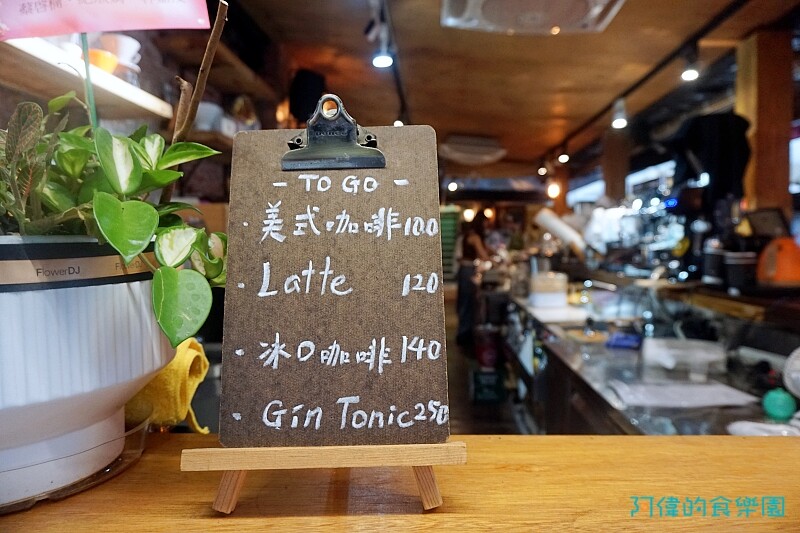 - TO GO -
· 美式咖啡 100
· Latte 120
· 冰O咖啡 140
· Gin Tonic 250
FlowerDJ
阿偉的食樂園